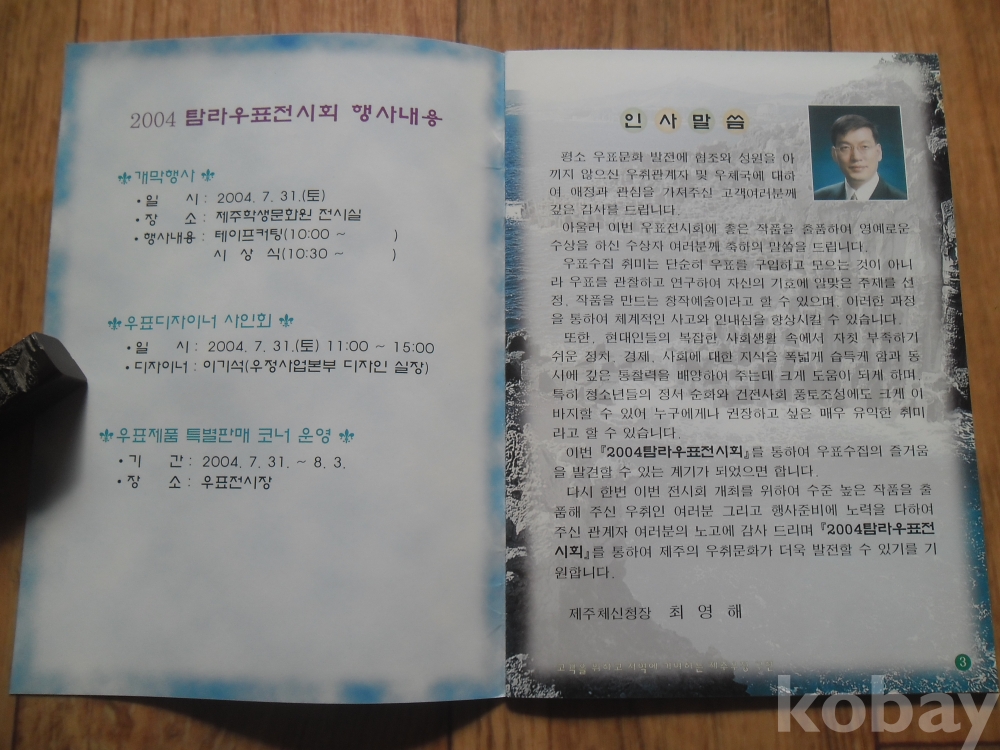 2004 탐라우표전시회 행사내용
개막행사
• 일 시 : 2004. 7. 31.(토)
• 장 소 : 제주학생문화원 전시실
• 행사내용 : 테이프커팅(10:00 ~ )
시 상 식(10:30 ~ )
우표디자이너 사인회
• 일 시 : 2004. 7. 31.(토) 11:00 ~ 15:00
• 디자이너 : 이기석(우정사업본부 디자인 실장)
우표제품 특별판매 코너 운영
• 기 간 : 2004. 7. 31. ~ 8. 3.
• 장 소 : 우표전시장
인사말씀
평소 우표문화 발전에 협조와 성원을 아
끼지 않으신 우취관계자 및 우체국에 대하
여 애정과 관심을 가져주신 고객여러분께
깊은 감사를 드립니다.
아울러 이번 우표전시회에 좋은 작품을 출품하여 영예로운
수상을 하신 수상자 여러분께 축하의 말씀을 드립니다.
우표수집 취미는 단순히 우표를 구입하고 모으는 것이 아니
라 우표를 관찰하고 연구하여 자신의 기호에 알맞은 주제를 선
정, 작품을 만드는 창작예술이라고 할 수 있으며, 이러한 과정
을 통하여 체계적인 사고와 인내심을 향상시킬 수 있습니다.
또한, 현대인들의 복잡한 사회생활 속에서 자칫 부족하기
쉬운 정치, 경제, 사회에 대한 지식을 폭넓게 습득케 함과 동
시에 깊은 통찰력을 배양하여 주는데 크게 도움이 되게 하며,
특히 청소년들의 정서 순화와 건전사회 풍토조성에도 크게 이
바지할 수 있어 누구에게나 권장하고 싶은 매우 유익한 취미
라고 할 수 있습니다.
이번 『2004탐라우표전시회』를 통하여 우표수집의 즐거움
을 발견할 수 있는 계기가 되었으면 합니다.
다시 한번 이번 전시회 개최를 위하여 수준 높은 작품을 출
품해 주신 우취인 여러분 그리고 행사준비에 노력을 다하여
주신 관계자 여러분의 노고에 감사 드리며 『2004탐라우표전
시회』를 통하여 제주의 우취문화가 더욱 발전할 수 있기를 기
원합니다.
제주체신청장 최 영 해
3
kobay